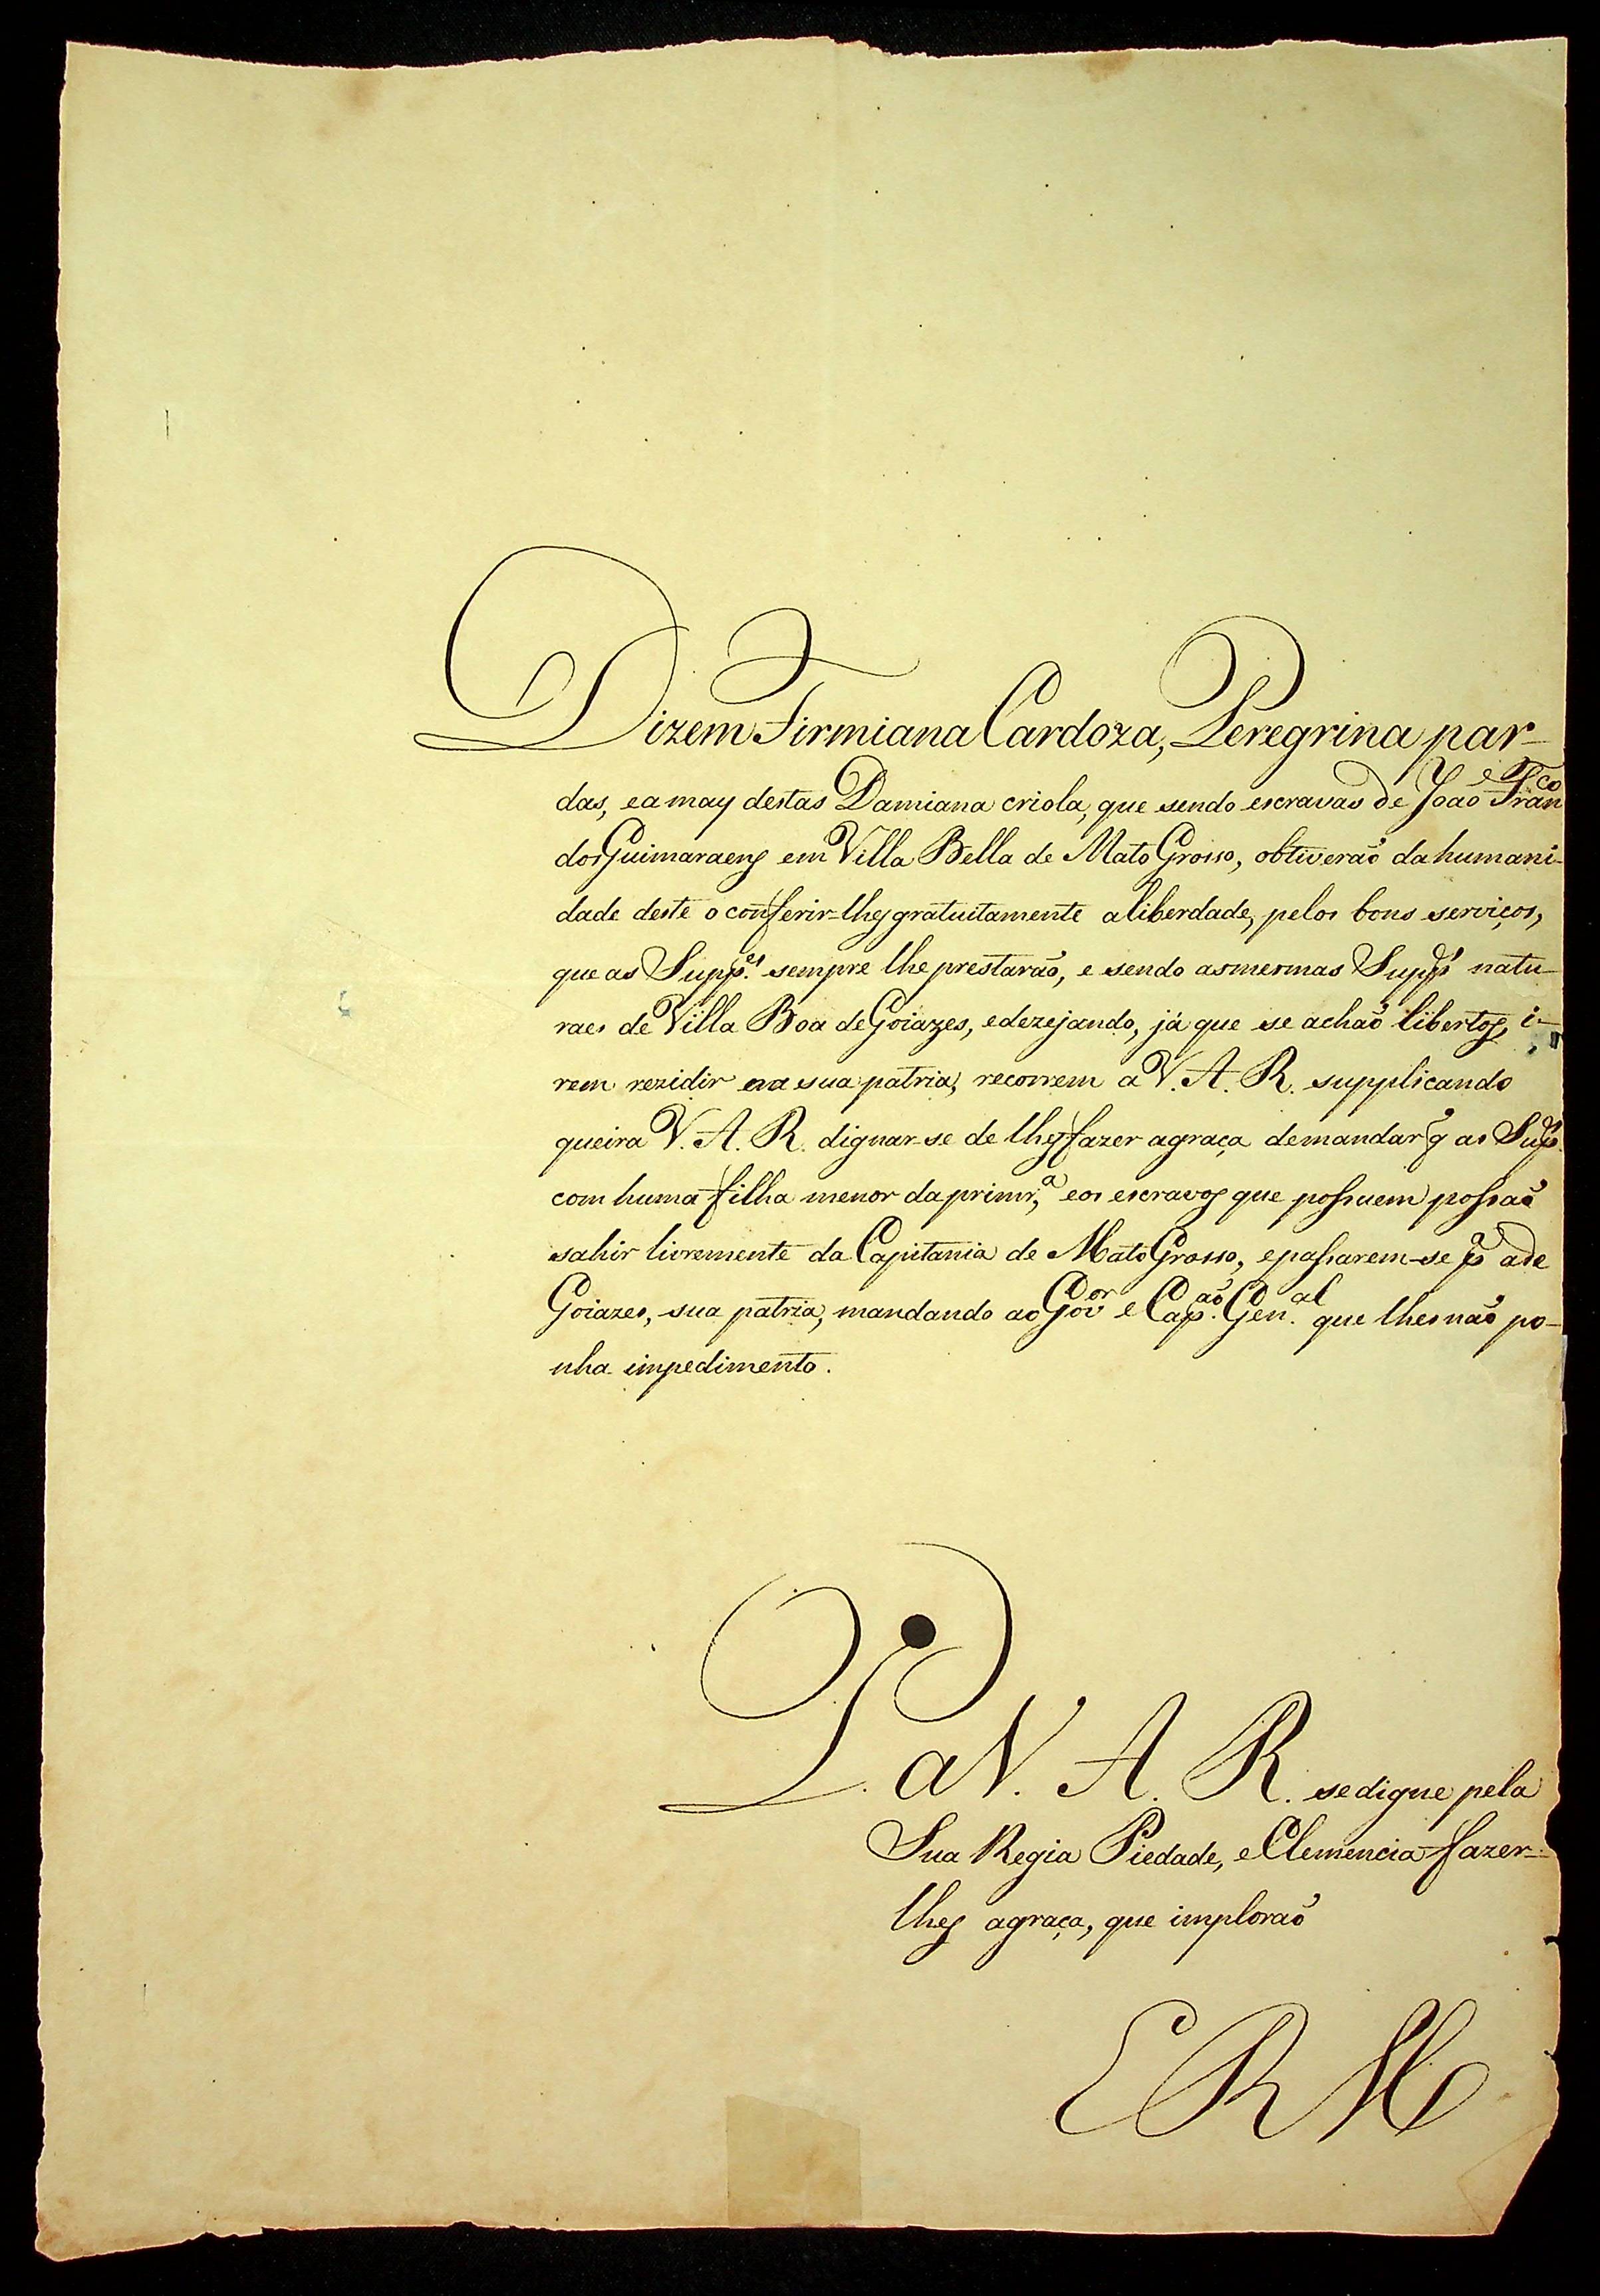 Dizem Firmiana Cardoza, e Peregrina par-
das, e a may destas Damiana criola, que sendo escravas de João Fran^co
dos Guimaraens em Villa Bella de Mato Grosso, obtiverão da humani-
dade deste o conferir-lhes gratuitamente a liberdade, pelos bons serviços,
que as Supp.^es sempre lhe prestarão, e sendo as mesmas Supp^es natu-
raes de Villa Boa de Goiazes, e dezejando, já que se achão libertos, i-
rem rezidir na sua patria, recorrem a V. A. R. supplicando
queira V. A. R. dignar-se de lhes fazer a graça de mandar q̃ as Sup^es
com huma filha menor da primr.^a, e os escravos que possuem possão
sahir livremente da Capitania de Mato Grosso, e passarem-se p^a a de
Goiazes, sua patria, mandando ao Gov^or e Cap.^ão Gen.^al que lhes não po-
nha impedimento.
P. a V. A. R. se digne pela
Sua Regia Piedade, e Clemencia fazer-
lhes a graça, que implorão
E R M